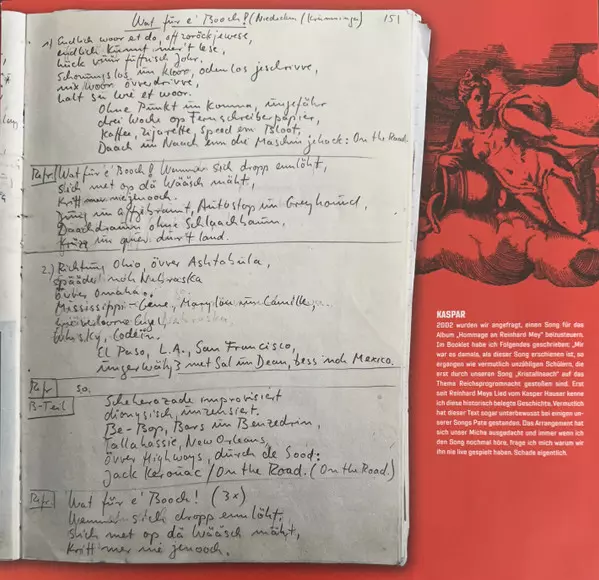 Wat für e' Booch! (Niedecken / Krumminga) 151
1) Endlich woor et do, off zoröckjewese,
endlich kunnt mer't lese,
hück vüür fuffzisch Johr.
Schonungslos un kloor, odemlos jeschrivve,
nix woor övverdrivve,
halt su wie et woor.
Ohne Punkt un Komma, ungefähr
drei Woche op Fernschreiberpapier,
Kaffee, Zijarette, Speed em Bloot,
Daach un Naach enn die Maschin jehack: On the Road.
Refr. Wat für e' Booch! Wemmer sich dropp ennlöht,
sich met op dä Wääsch mäht,
kritt mer nie jenooch.
Jung un affjebrannt, Autostop un Greyhound,
Daachdraum ohne Schlaachbaum,
krüzz un quer durt Land.
2.) Richtung Ohio övver Ashtabula,
spääder noh Nebraska
övver Omaha.
Mississippi-Gene, Marylou un Camille,
Whisky, Codein.
El Paso, L.A., San Francisco,
ungerwähß met Sal un Dean, bess noh Mexico.
Refr. so.
B-Teil Scheherazade improvisiert
dionysisch, unzensiert.
Be-Bop, Bars un Benzedrin,
Tallahassie, New Orleans,
övver Highways, durch de Sood:
Jack Kerouac / On the Road. (On the Road)
Refr. Wat für e' Booch! (3x)
Wemmer sich dropp ennlöht,
sich met op dä Wääsch mäht,
kritt mer nie jenooch.
KASPAR
2002 wurden wir angefragt, einen Song für das
Album „Hommage an Reinhard Mey" beizusteuern.
Im Booklet habe ich Folgendes geschrieben: „Mir
war es damals, als dieser Song erschienen ist, so
ergangen wie vermutlich unzähligen Schülern, die
erst durch unseren Song „Kristallnaach" auf das
Thema Reichsprogromnacht gestoßen sind. Erst
seit Reinhard Meys Lied vom Kaspar Hauser kenne
ich diese historisch belegte Geschichte. Vermutlich
hat dieser Text sogar unterbewusst bei einigen un-
serer Songs Pate gestanden. Das Arrangement hat
sich unser Micha ausgedacht und immer wenn ich
den Song nochmal höre, frage ich mich warum wir
ihn nie live gespielt haben. Schade eigentlich.